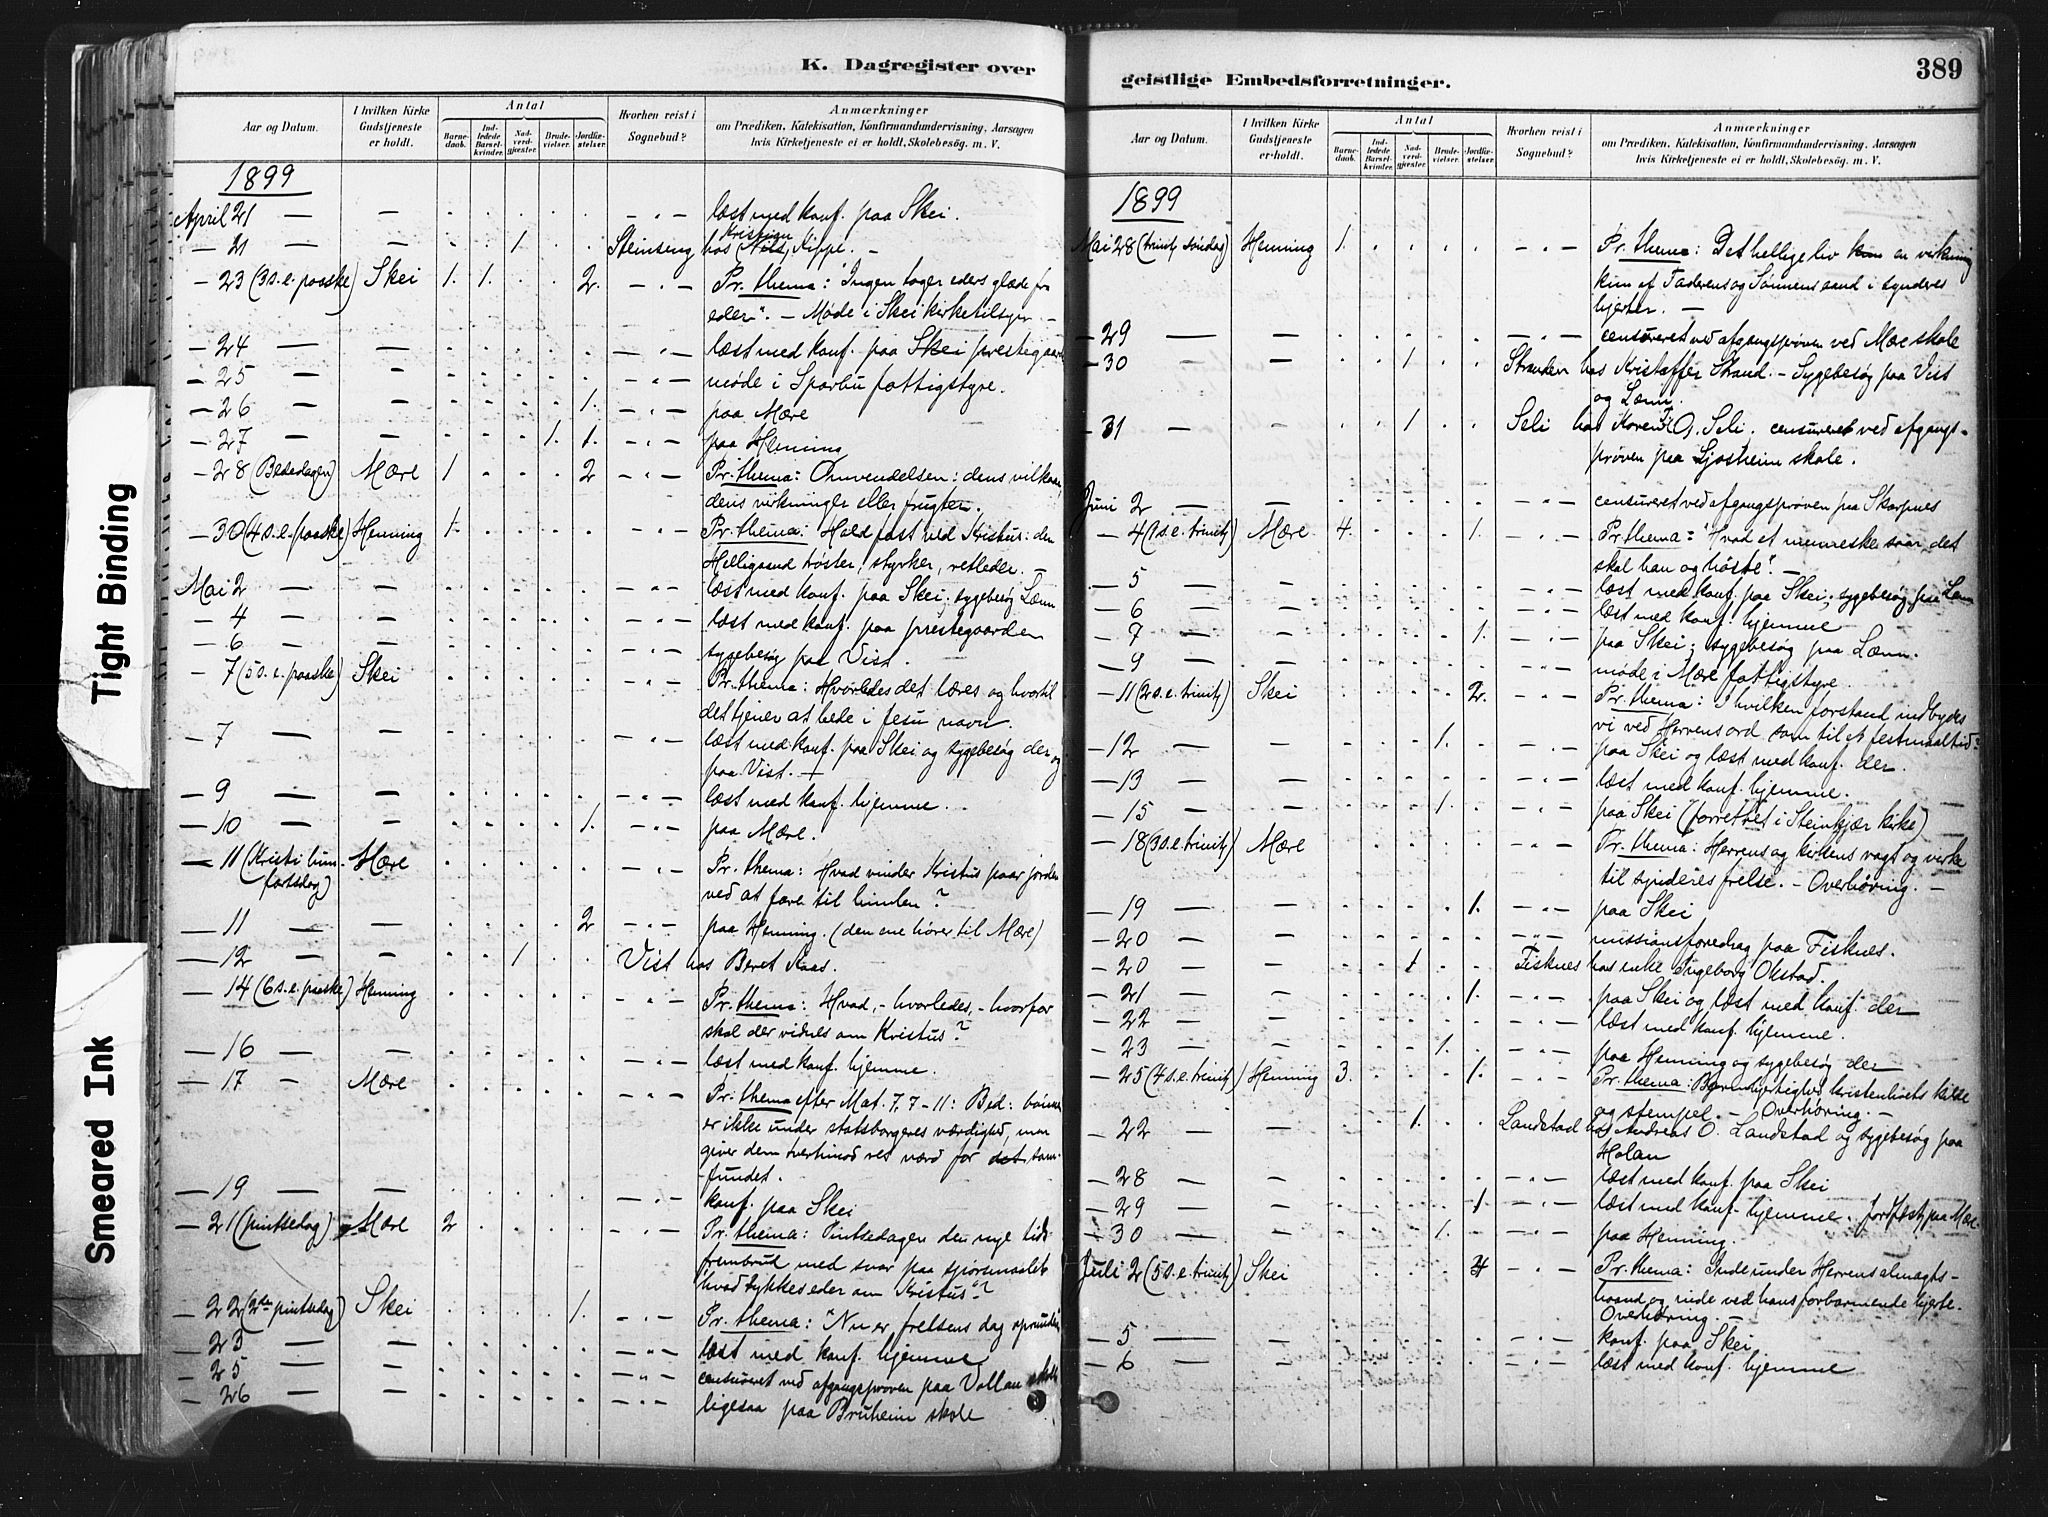 K. Dagregister over
Aar og Datum.
I hvilken Kirke Gudstjeneste er holdt.
Antal
Barne-daab.
Ind-ledede Barsel-kvinder.
Nad-verd-gjester.
Brude-vielser.
Jordfæ-stelser.
Hvorhen reist i Sognebud?
Anmærkninger
om Prædiken, Katekisation, Konfirmandundervisning, Aarsagen
hvis Kirketjeneste ei er holdt, Skolebesøg. m. V.
1899
April 21 — — — " — læst med konf. paa Skei.
— 21 — — 1 Steinseng hos Kristian Kippe. —
— 23 (3 s. e. paaske) Skei 1. 1. 2. — " — Pr. thema: Ingen tager eders glæde fra
eder". — Møde i Skei kirketilsyn —
— 24 — — — " — læst med konf. paa Skei prestegaard
— 25 — — — " — møde i Sparbu fattigstyre.
— 26 — — 1. — " — paa Mære
— 27 — — 1. 1. — " — paa Henning
— 28 (Bededagen) Mære 1 2 — " — Pr. thema: Omvendelsen: dens vilkaar,
dens virkninger eller frugter.
— 30 (4 s. e. paaske) Henning 1. — " — Pr. thema: Hold fast ved Kristus: den
Helligaand trøster, styrker, retleder. —
Mai 2 — — — " — læst med konf. paa Skei; sygebesøg Lænn
— 4 — — — " — læst med konf. paa prestegaarden
— 6 — — — " — sygebesøg paa Vist.
— 7 (5 s. e. paaske) Skei — " — Pr. thema: Hvorledes det læres og hvortil
det tjener at bede i Jesu navn.
— 7 — — — " — læst med konf. paa Skei og sygebesøg der og
paa Vist. —
— 9 — — — " — læst med konf. hjemme.
— 10 — — 1. — " — paa Mære.
— 11 (Kristi him- Mære — " — Pr. thema: Hvad vinder Kristus paa jorden
fartsdag) ved at fare til himlen?
— 11 — — 2 — " — paa Henning. (den ene hører til Mære)
— 12 — — 1 Vist hos Beret Aas.
— 14 (6 s. e. paaske) Henning — " — Pr. thema: Hvad, - hvorledes, - hvorfor
skal der vidnes om Kristus?
— 16 — — — " — læst med konf. hjemme.
— 17 — Mære — " — Pr. thema efter Mat. 7, 7-11: Bed: bønnen
er ikke under statsborgeres værdighed, man
giver dem tvertimod ret værd for det sam-
fundet.
— 19 — — — " — konf. paa Skei
— 21 (pintsedag) Mære 2 — " — Pr. thema: Pintsedagen den nye tids
frembrud med svar paa spørsmaalet:
hvad tykkes eder om Kristus"?
— 22 (2den pintsedag) Skei 1. — " — Pr. thema: "Nu er frelsens dag oprunden
— 23 — — — " — læst med konf. hjemme
— 25 — — — " — censureret ved afgangsprøven paa Vollan skole
— 26 — — — " — ligesaa paa Bruheim skole
geistlige Embedsforretninger.
389
Aar og Datum.
I hvilken Kirke Gudstjeneste er holdt.
Antal
Barne-daab.
Ind-ledede Barsel-kvinder.
Nad-verd-gjester.
Brude-vielser.
Jordfæ-stelser.
Hvorhen reist i Sognebud?
Anmærkninger
om Prædiken, Katekisation, Konfirmandundervisning, Aarsagen
hvis Kirketjeneste ei er holdt, Skolebesøg. m. V.
1899
Mai 28 (trinit. søndag) Henning 1. — " — Pr. thema: Det hellige liv en virkning
kun af Faderens og Sønnens aand i synderes
hjerter. —
— 29 — — — " — censureret ved afgangsprøven ved Mære skole
— 30 — — 1 Stranden hos Kristoffer Strand. - Sygebesøg paa Vist
og Lænn.
— 31 — 1 Seli hos Karen O. Seli. censureret ved afgangs-
prøven paa Ljosheim skole.
Juni 2 — — — " — censureret ved afgangsprøven paa Skarpnes
— 4 (1 s. e. trinit.) Mære 4. 1. — " — Pr. thema: "Hvad et menneske saar, det
skal han og høste". —
— 5 — — — " — læst med konf. paa Skei; sygebesøg paa Lænn
— 6 — — — " — læst med konf. hjemme
— 7 — — 1. — " — paa Skei; sygebesøg paa Lænn.
— 9 — — — " — møde i Mære fattigstyre.
— 11 (2 s. e. trinit.) Skei 2. — " — Pr. thema: I hvilken forstand indbydes
vi ved Herrens ord som til et festmaaltid?
— 12 — — 1. — " — paa Skei og læst med konf. der.
— 13 — — — " — læst med konf. hjemme.
— 15 — — 1. — " — paa Skei (forrettet i Steinkjær kirke)
— 18 (3 s. e. trinit.) Mære — " — Pr. thema: Herrens og kirkens vagt og virke
til synderes frelse. - Overhøring. —
— 19 — — 1. — " — paa Skei
— 20 — — — " — missionsforedrag paa Fisknes.
— 20 — — 1 Fisknes hos enke Ingeborg Okstad.
— 21 — — 1. — " — paa Skei og læst med konf. der
— 22 — — — " — læst med konf. hjemme.
— 23 — — 1. — " — paa Henning og sygebesøg der
— 25 (4 s. e. trinit.) Henning 3. 1. — " — Pr. thema: Barmhjertighed kristenlivets kilde
og stempel. - Overhøring. —
— 22 — — 1. Landstad hos Andreas O. Landstad og sygebesøg paa
Holan
— 28 — — — " — læst med konf. paa Skei
— 29 — — 1 — " — læst med konf. hjemme. Jordfæst. paa Mære.
— 30 — — 1. — " — paa Henning.
Juli 2 (5 s. e. trinit.) Skei 4 — " — Pr. thema: Inde under Herrens almagts-
haand og inde ved hans forbarmende hjerte.
Overhøring. —
— 5 — — — " — konf. paa Skei
— 6 — — — " — læst med konf. hjemme
Tight Binding
Smeared Ink